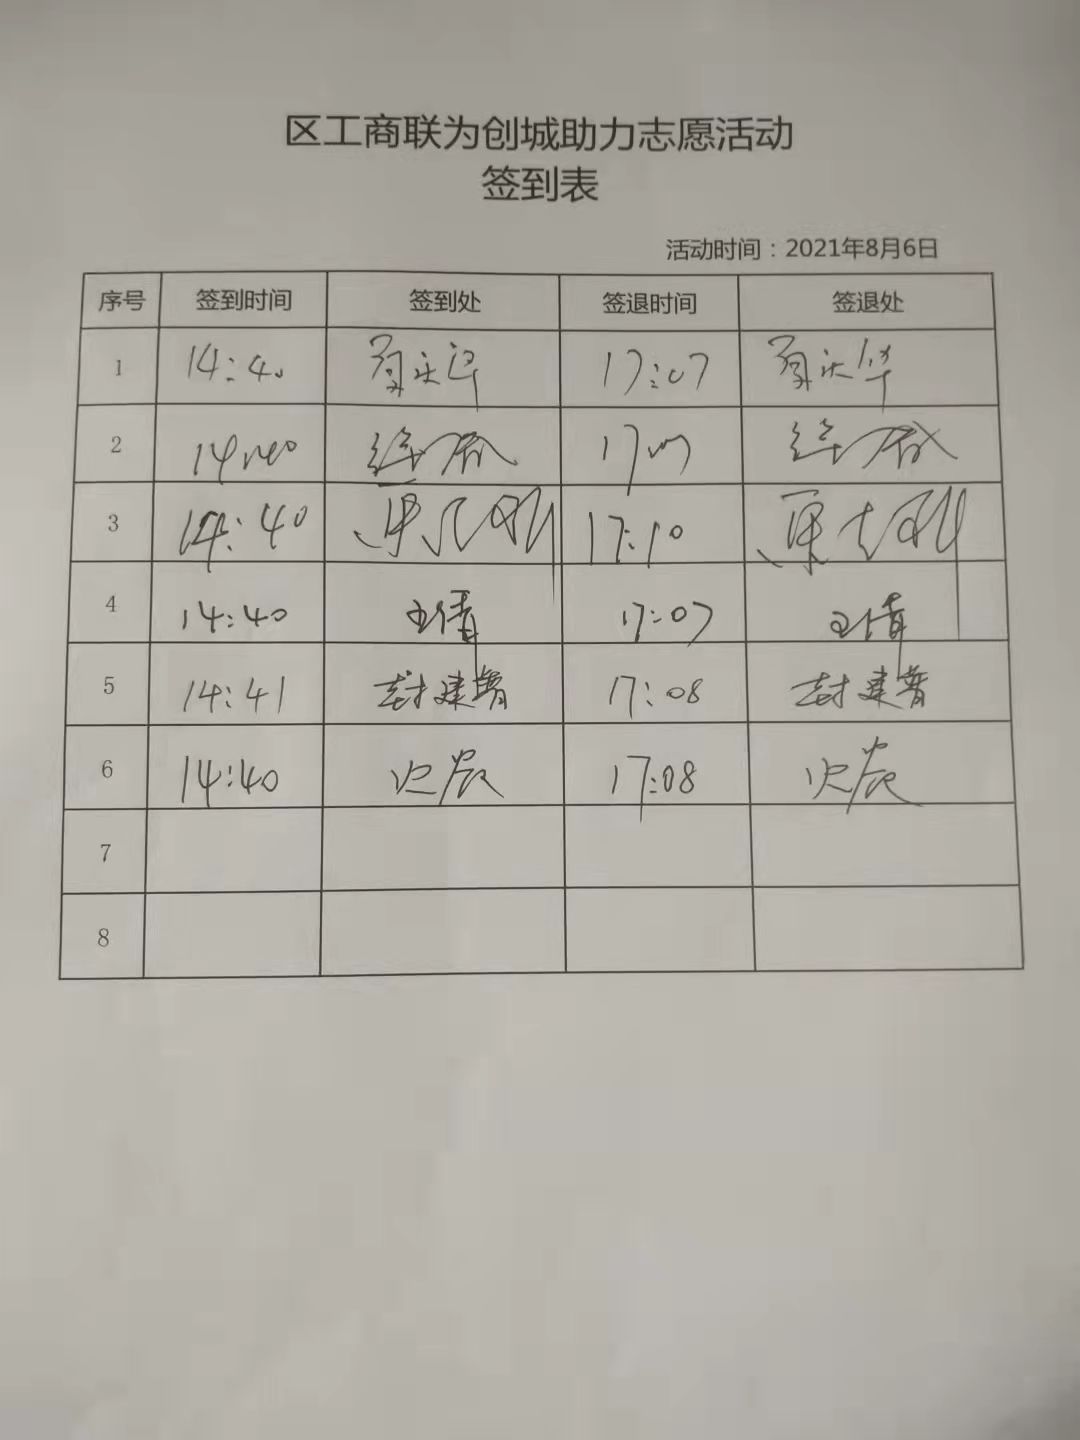 区工商联为创城助力志愿活动
签到表
活动时间：2021年8月6日
序号 签到时间 签到处 签退时间 签退处
1 14:40 17:07
2 14:40 17:07
3 14:40 17:10
4 14:40 王倩 17:07 王倩
5 14:41 封建普 17:08 封建普
6 14:40 17:08
7
8